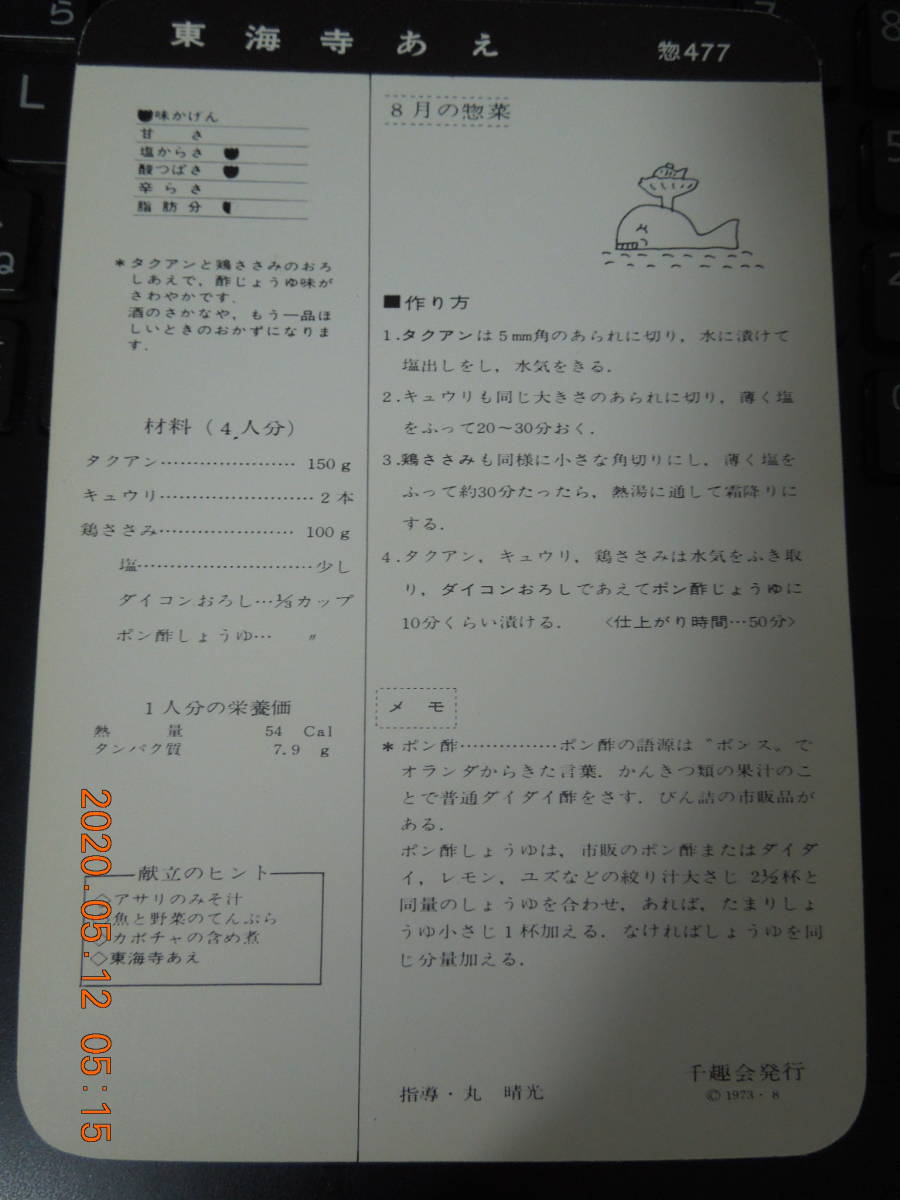 東海寺あえ
惣477
味かげん
甘さ
塩からさ
酸っぱさ
辛らさ
脂肪分
*タクアンと鶏ささみのおろ
しあえで，酢じょうゆ味が
さわやかです．
酒のさかなや，もう一品ほ
しいときのおかずになりま
す．
材料（4人分）
タクアン…………………150g
キュウリ……………………2本
鶏ささみ…………………100g
塩………………………少し
ダイコンおろし…⅓カップ
ポン酢しょうゆ…　〃
1人分の栄養価
熱量　54 Cal
タンパク質　7.9 g
献立のヒント
◇アサリのみそ汁
◇魚と野菜のてんぷら
◇カボチャの含め煮
◇東海寺あえ
8月の惣菜
■作り方
1.タクアンは5mm角のあられに切り，水に漬けて
塩出しをし，水気をきる．
2.キュウリも同じ大きさのあられに切り，薄く塩
をふって20〜30分おく．
3.鶏ささみも同様に小さな角切りにし，薄く塩を
ふって約30分たったら，熱湯に通して霜降りに
する．
4.タクアン，キュウリ，鶏ささみは水気をふき取
り，ダイコンおろしであえてポン酢じょうゆに
10分くらい漬ける．　〈仕上がり時間…50分〉
メモ
*ポン酢……………ポン酢の語源は〝ポンス〟で
オランダからきた言葉．かんきつ類の果汁のこ
とで普通ダイダイ酢をさす．びん詰の市販品が
ある．
ポン酢しょうゆは，市販のポン酢またはダイダ
イ，レモン，ユズなどの絞り汁大さじ 2½杯と
同量のしょうゆを合わせ，あれば，たまりしょ
うゆ小さじ1杯加える．なければしょうゆを同
じ分量加える．
指導・丸　晴光
千趣会発行
©1973・8
2020.05.12 05:15